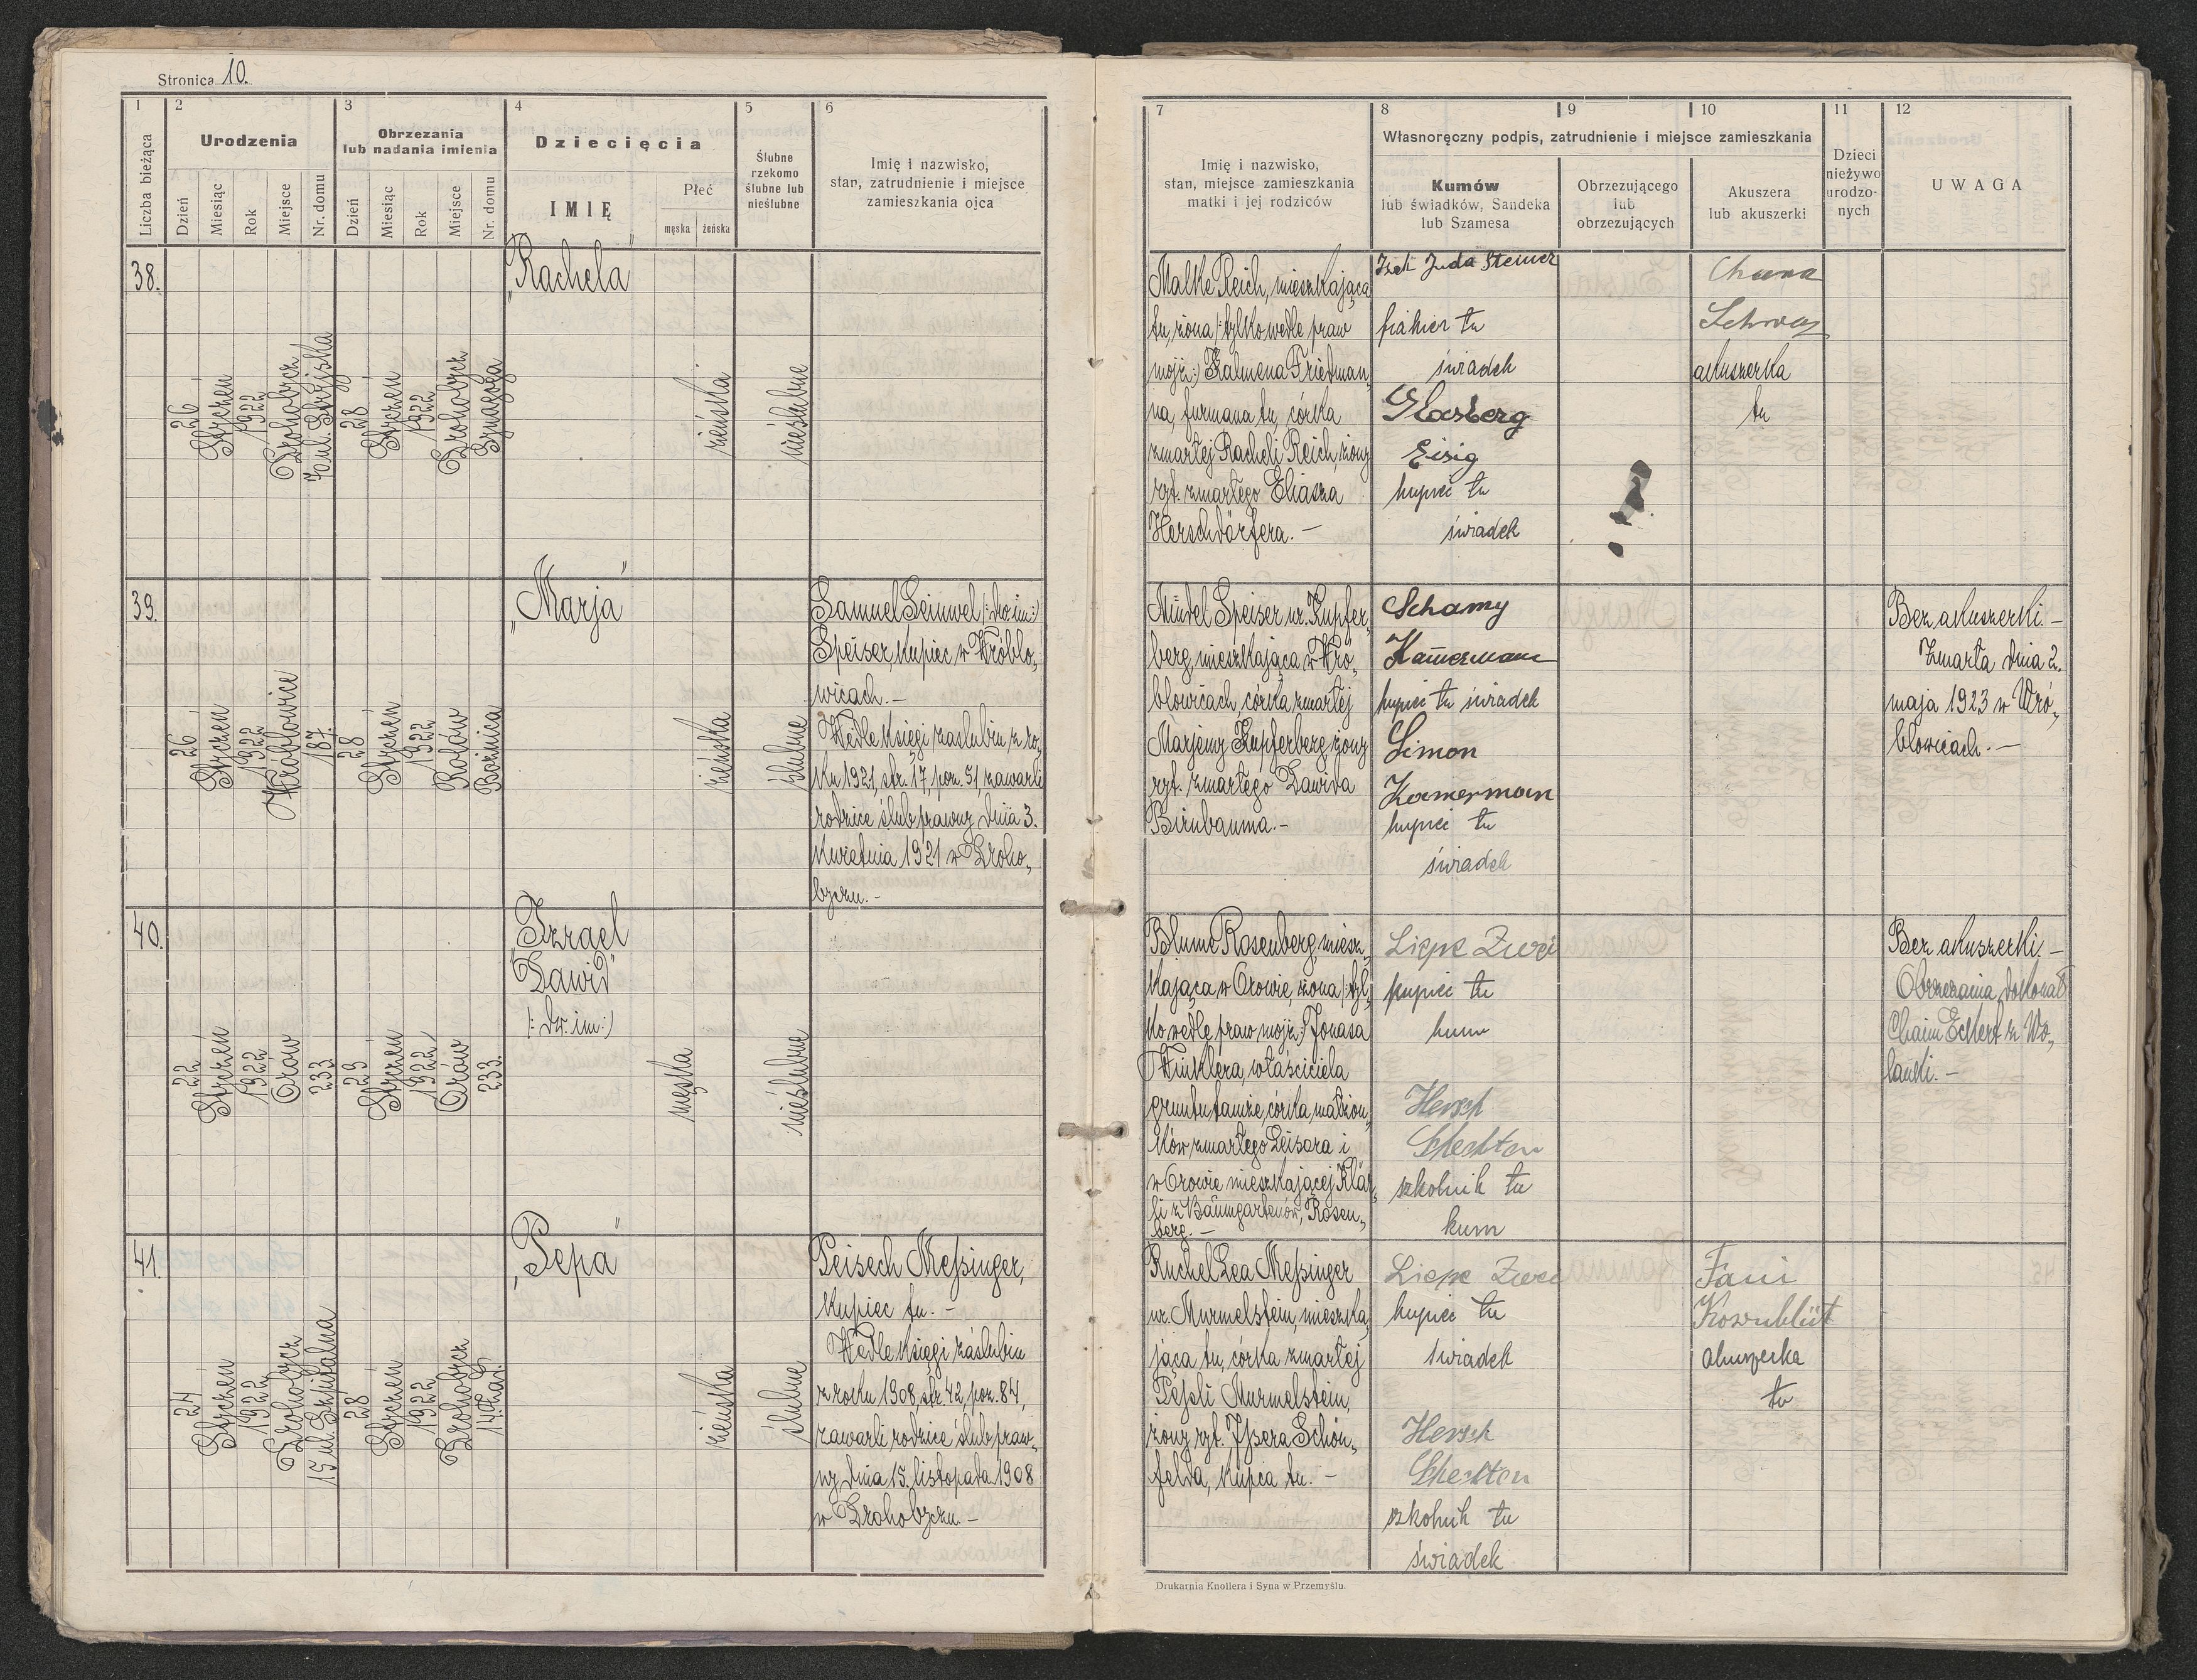 Stronica 10.
1
2
3
4
5
6
Liczba bieżąca
Urodzenia
Obrzezania
lub nadania imienia
Dziecięcia
Ślubne
rzekomo
ślubne lub
nieślubne
Imię i nazwisko,
stan, zatrudnienie i miejsce
zamieszkania ojca
Dzień
Miesiąc
Rok
Miejsce
Nr. domu
Dzień
Miesiąc
Rok
Miejsce
Nr. domu
IMIĘ
Płeć
męska
żeńska
38.
26
Styczeń
1922
Drohobycz
ul. Stryjska
28
Styczeń
1922
Drohobycz
Synagoga
„Rachela”
żeńska
nieślubne
39.
26
Styczeń
1922
Wróblowice
187.
28
Styczeń
1922
Rolów
Bożnica
„Marja”
żeńska
ślubne
Samuel Seinwel (: dw. im :)
Speiser, kupiec w Wróblo„
wicach. –
Wedle księgi zaślubin z ro„
ku 1921, str. 17, poz. 51 zawarli
rodzice ślub prawny dnia 3.
kwietnia 1921 w Droho„
byczu. –
40.
22
Styczeń
1922
Orów
233
29
Styczeń
1922
Orów
233.
„Izrael
Dawid”
(: dw. im :)
męska
nieślubne
41.
24
Styczeń
1922
Drohobycz
15 ul. Szpitalna
28
Styczeń
1922
Drohobycz
„Pepa”
żeńska
ślubne
Peisech Meßinger,
kupiec tu. –
Wedle księgi zaślubin
z roku 1908, str. 42, poz. 84,
zawarli rodzice ślub praw„
ny dnia 15. listopada 1908
w Drohobyczu. –
7
8
9
10
11
12
Imię i nazwisko,
stan, miejsce zamieszkania
matki i jej rodziców
Własnoręczny podpis, zatrudnienie i miejsce zamieszkania
Kumów
lub świadków, Sandeka
lub Szamesa
Obrzezującego
lub
obrzezujących
Akuszera
lub akuszerki
Dzieci
nieżywo
urodzo-
nych
UWAGA
Malke Reich, mieszkająca
tu, żona (: tylko wedle praw
mojż :) Zalmena Friedman„
na, furmana tu, córka
zmarłej Racheli Reich, żony
ryt. zmarłego Eliasza
Herschdörfera. –
Juda Steiner
fiakier tu
świadek
Glasberg
Eisig
kupiec tu
świadek
Chana
Schwarz
akuszerka
tu
Mindel Speiser ur. Kupfer„
berg, mieszkająca w Wró„
blowicach, córka zmarłej
Marjemy Kupferberg, żony
ryt. zmarłego Dawida
Birnbauma. –
Schamy
Kamerman
kupiec tu świadek
Simon
Kamerman
kupiec tu
świadek
Bez akuszerki. –
Zmarła dnia 2.
maja 1923 w Wró„
blowicach. –
Blume Rosenberg, miesz„
kająca w Orowie, żona (: tyl„
ko wedle praw mojż :) Jonasa
Winklera, właściciela
gruntu tamże, córka małżon„
ków zmarłego Leisora i
w Orowie mieszkającej Klär„
li z Baumgartenów, Rosen„
berg. –
Lippe Zwei
kupiec tu
kum
Hersch
Schechter
szkolnik tu
kum
Bez akuszerki. –
Obrzezania dokonał
Chaim Eckert z Wo„
lanki. –
Ruchel Lea Meßinger
ur. Murmelstein, mieszka„
jąca tu, córka zmarłej
Peßeli Murmelstein,
żony ryt. Ißera Schön„
felda, kupca tu. –
Lippe Zwei
kupiec tu
świadek
Hersch
Schechter
szkolnik tu
świadek
Fani
Kornblüt
akuszerka
tu
Drukarnia Knollera i Syna w Przemyślu.